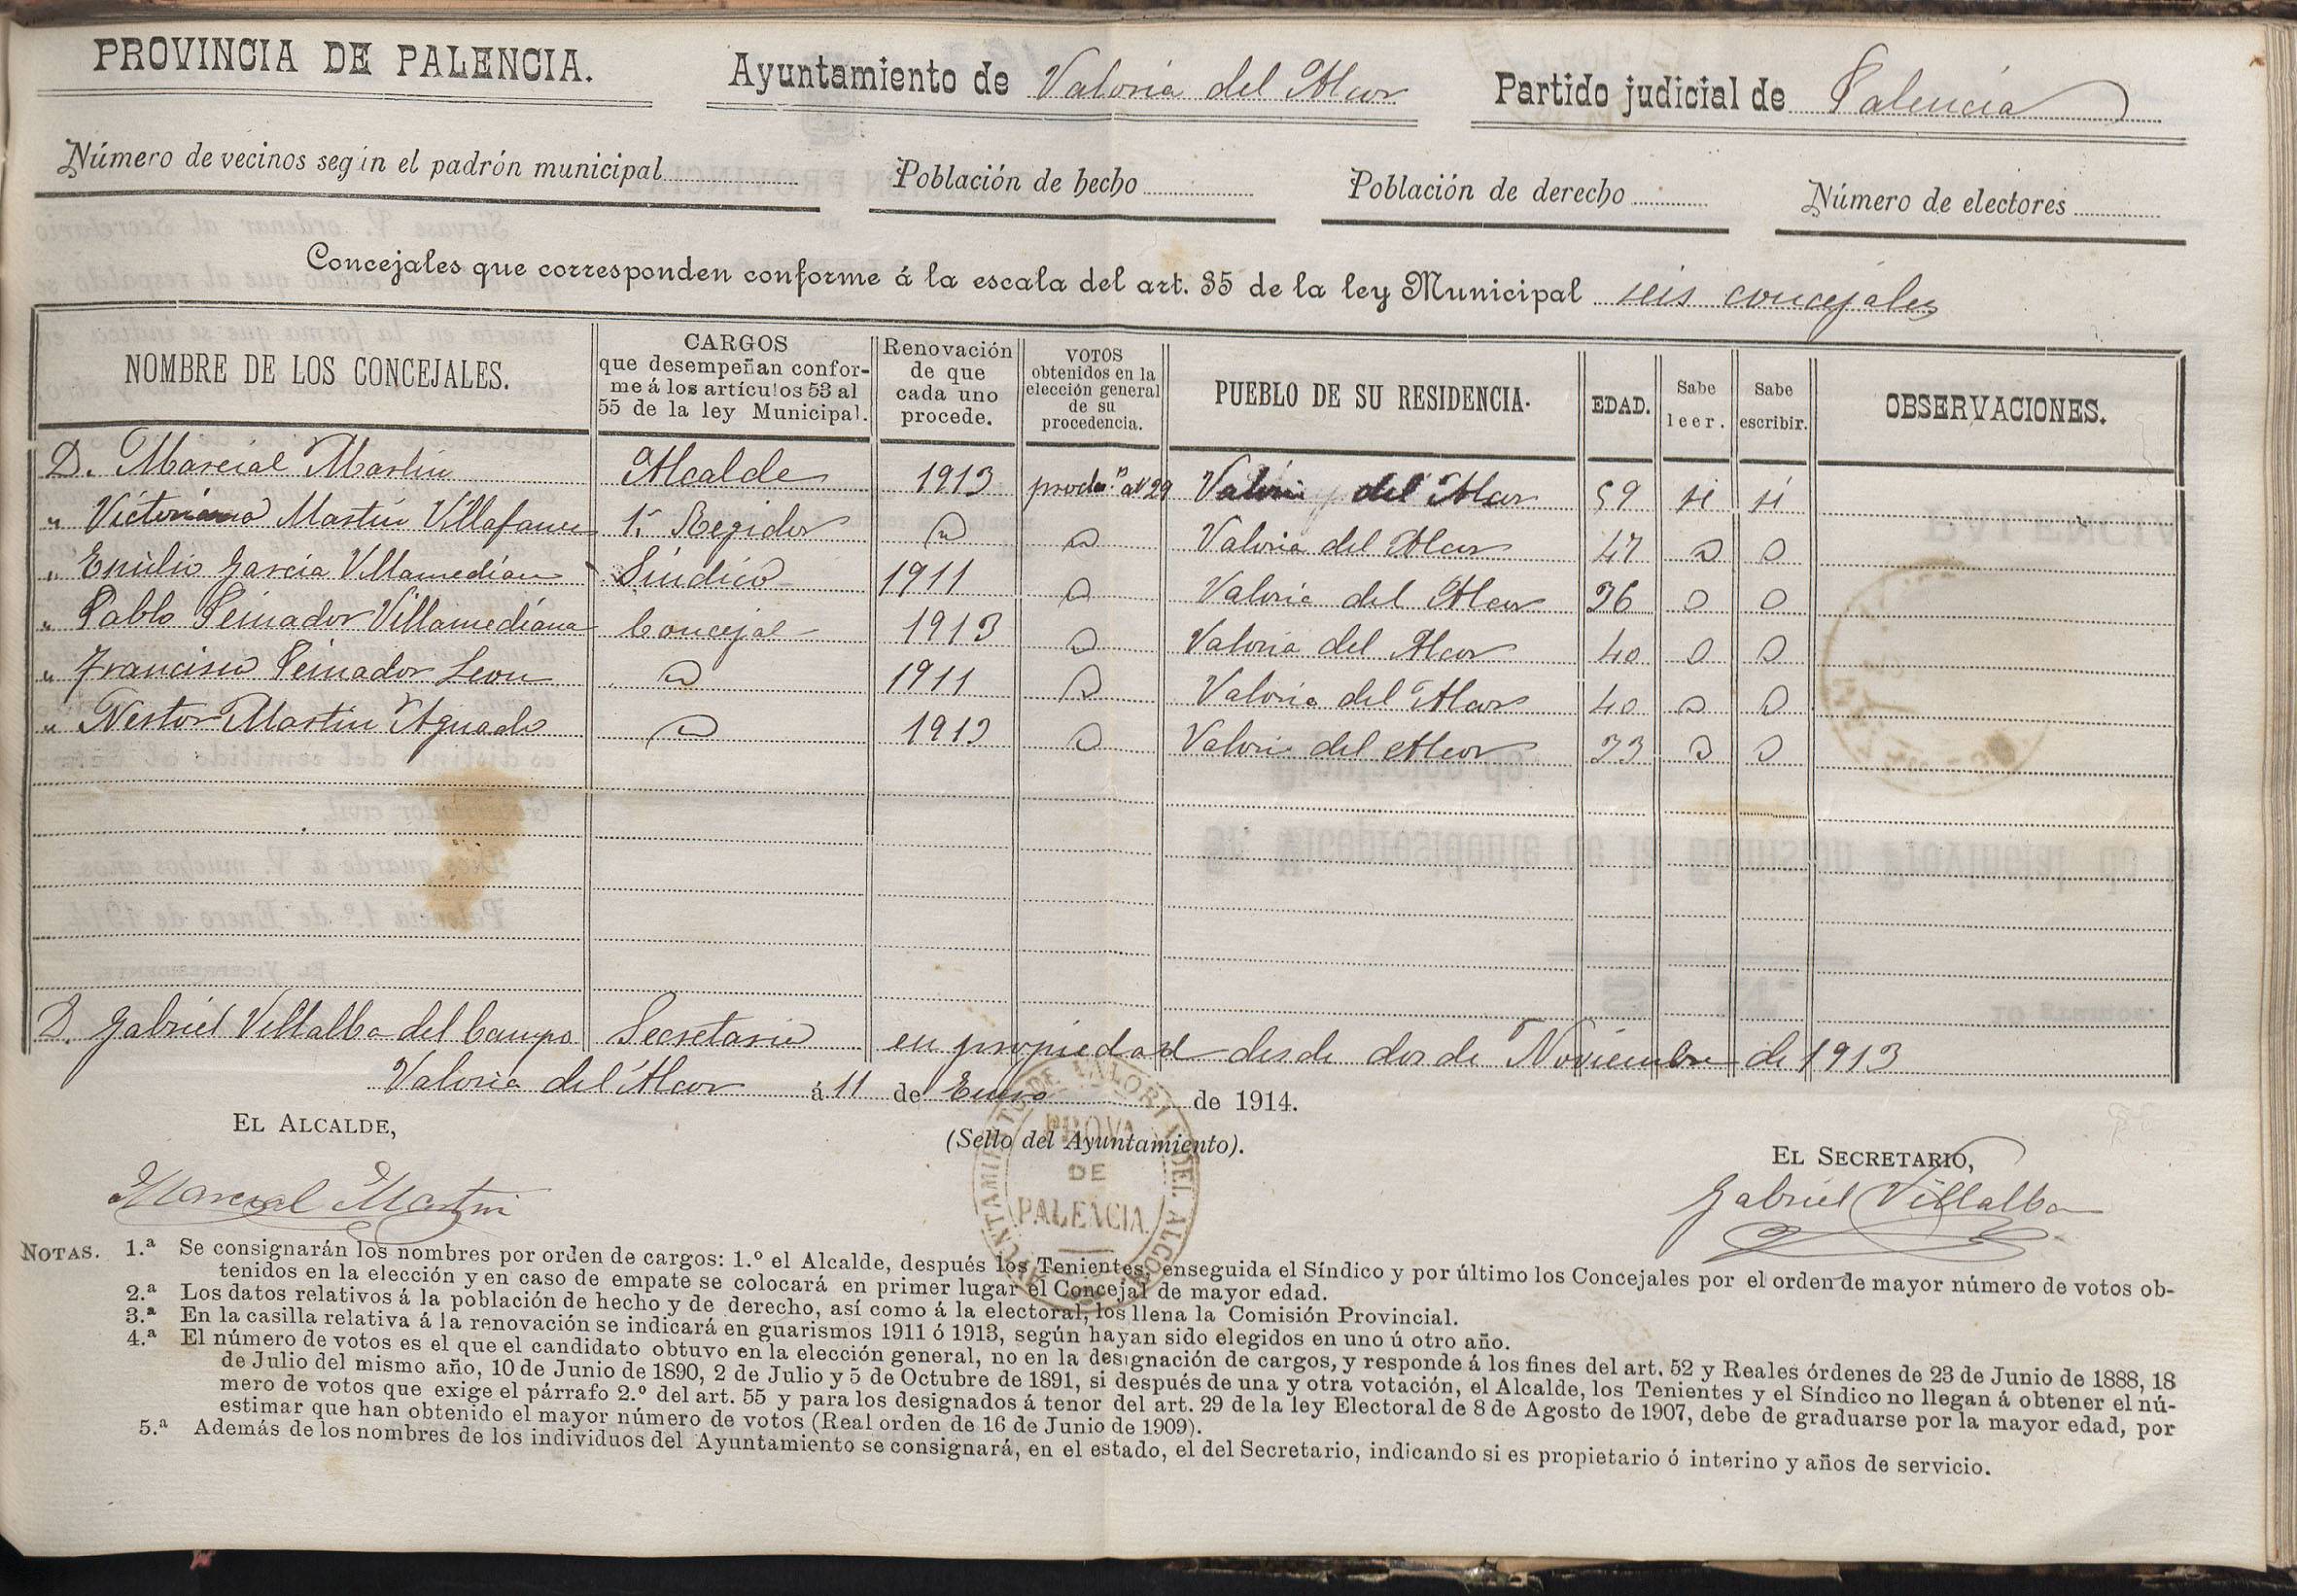 PROVINCIA DE PALENCIA. Ayuntamiento de Valoria del Alcor Partido judicial de Palencia
Número de vecinos según el padrón municipal Población de hecho Población de derecho Número de electores
Concejales que corresponden conforme á la escala del art. 35 de la ley Municipal seis concejales
NOMBRE DE LOS CONCEJALES. CARGOS que desempeñan conforme á los artículos 53 al 55 de la ley Municipal. Renovación de que cada uno procede. VOTOS obtenidos en la elección general de su procedencia. PUEBLO DE SU RESIDENCIA. EDAD. Sabe leer. Sabe escribir. OBSERVACIONES.
D. Marcial Martin Alcalde 1913 procl.n at 29 Valoria del Alcor 59 si si
" Victoriano Martin Villafane 1.r Regidor " " Valoria del Alcor 47 " "
" Emilio Garcia Villamedian Síndico 1911 " Valoria del Alcor 36 " "
" Pablo Peinador Villamediana Concejal 1913 " Valoria del Alcor 40 " "
" Francisco Peinador Leon " 1911 " Valoria del Alcor 40 " "
" Nestor Martin Aguado " 1913 " Valoria del Alcor 33 " "
D. Gabriel Villalba del Campo Secretario en propiedad desde dos de Noviembre de 1913
Valoria del Alcor á 11 de Enero de 1914.
EL ALCALDE, (Sello del Ayuntamiento). EL SECRETARIO,
Marcial Martin Gabriel Villalba
AYUNTAMIENTO DE VALORIA DEL ALCOR
PROVA.
DE
PALENCIA
NOTAS. 1.ª Se consignarán los nombres por orden de cargos: 1.º el Alcalde, después los Tenientes, enseguida el Síndico y por último los Concejales por el orden de mayor número de votos ob-
tenidos en la elección y en caso de empate se colocará en primer lugar el Concejal de mayor edad.
2.ª Los datos relativos á la población de hecho y de derecho, así como á la electoral, los llena la Comisión Provincial.
3.ª En la casilla relativa á la renovación se indicará en guarismos 1911 ó 1913, según hayan sido elegidos en uno ú otro año.
4.ª El número de votos es el que el candidato obtuvo en la elección general, no en la designación de cargos, y responde á los fines del art. 52 y Reales órdenes de 23 de Junio de 1888, 18
de Julio del mismo año, 10 de Junio de 1890, 2 de Julio y 5 de Octubre de 1891, si después de una y otra votación, el Alcalde, los Tenientes y el Síndico no llegan á obtener el nú-
mero de votos que exige el párrafo 2.º del art. 55 y para los designados á tenor del art. 29 de la ley Electoral de 8 de Agosto de 1907, debe de graduarse por la mayor edad, por
estimar que han obtenido el mayor número de votos (Real orden de 16 de Junio de 1909).
5.ª Además de los nombres de los individuos del Ayuntamiento se consignará, en el estado, el del Secretario, indicando si es propietario ó interino y años de servicio.